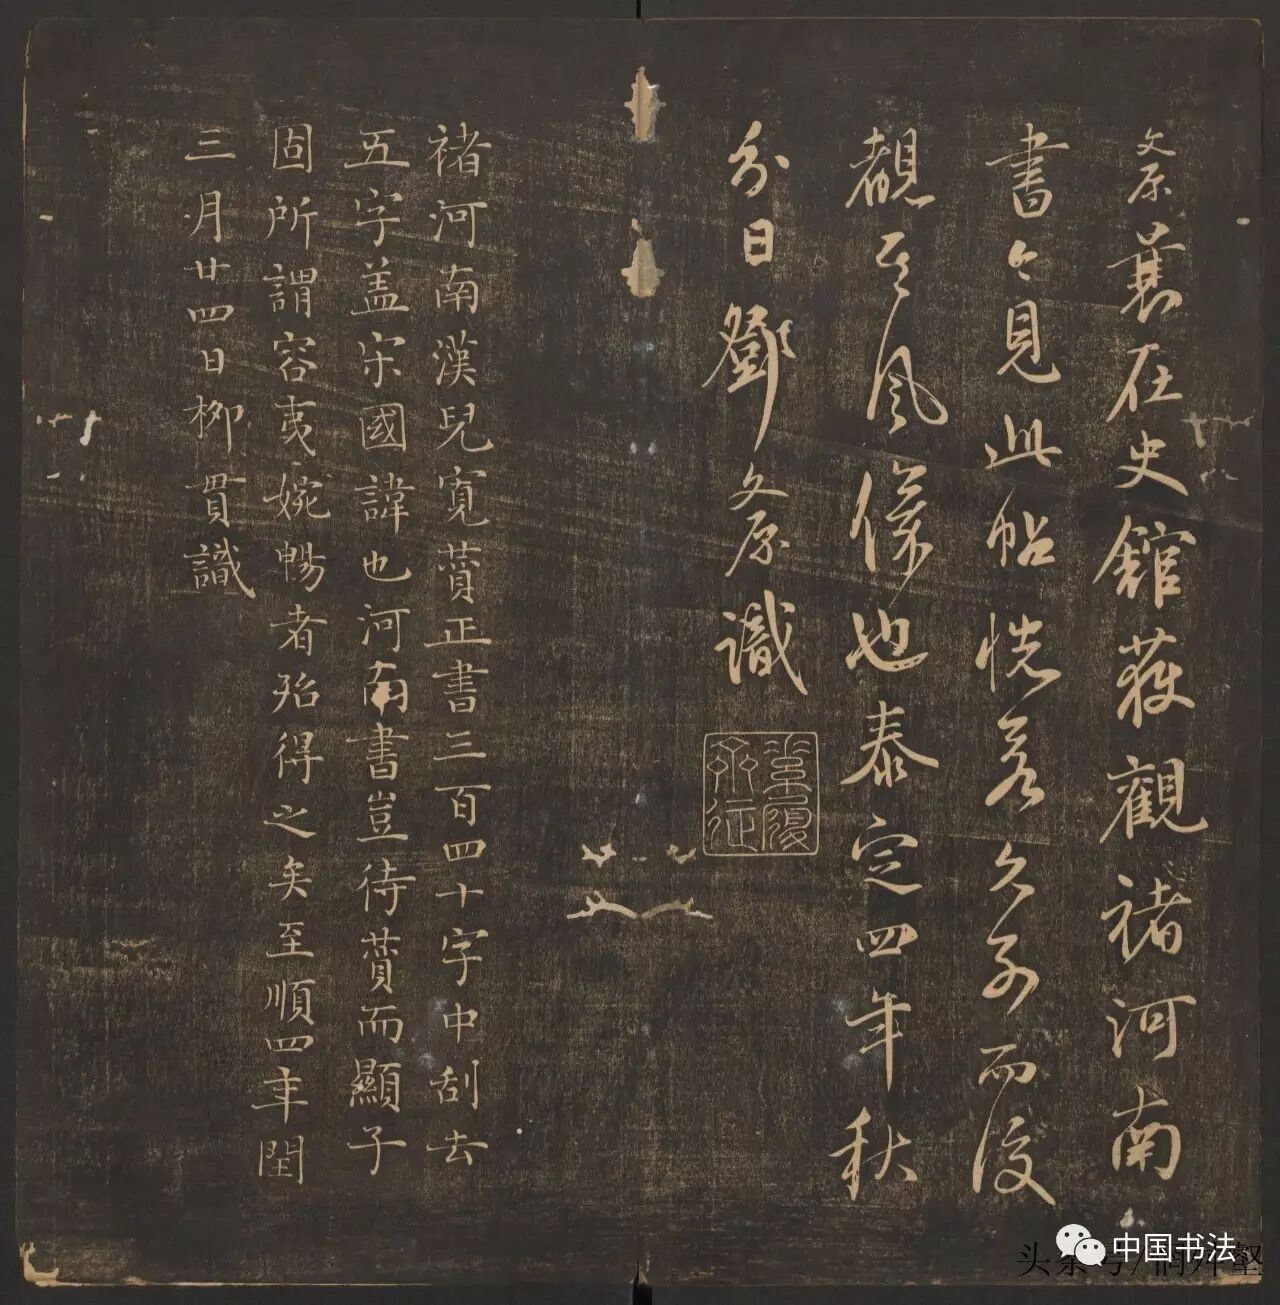 文原曩在史館獲觀褚河南
書今見此帖恍若久別而復
覩其風儀也泰定四年秋
分日鄧文原識
褚河南漢兒寬贊正書三百四十字中刮去
五字盖宋國諱也河南書豈待贊而顯子
固所謂容夷婉暢者殆得之矣至順四年閏
三月廿四日柳貫識
中国书法
头条号/